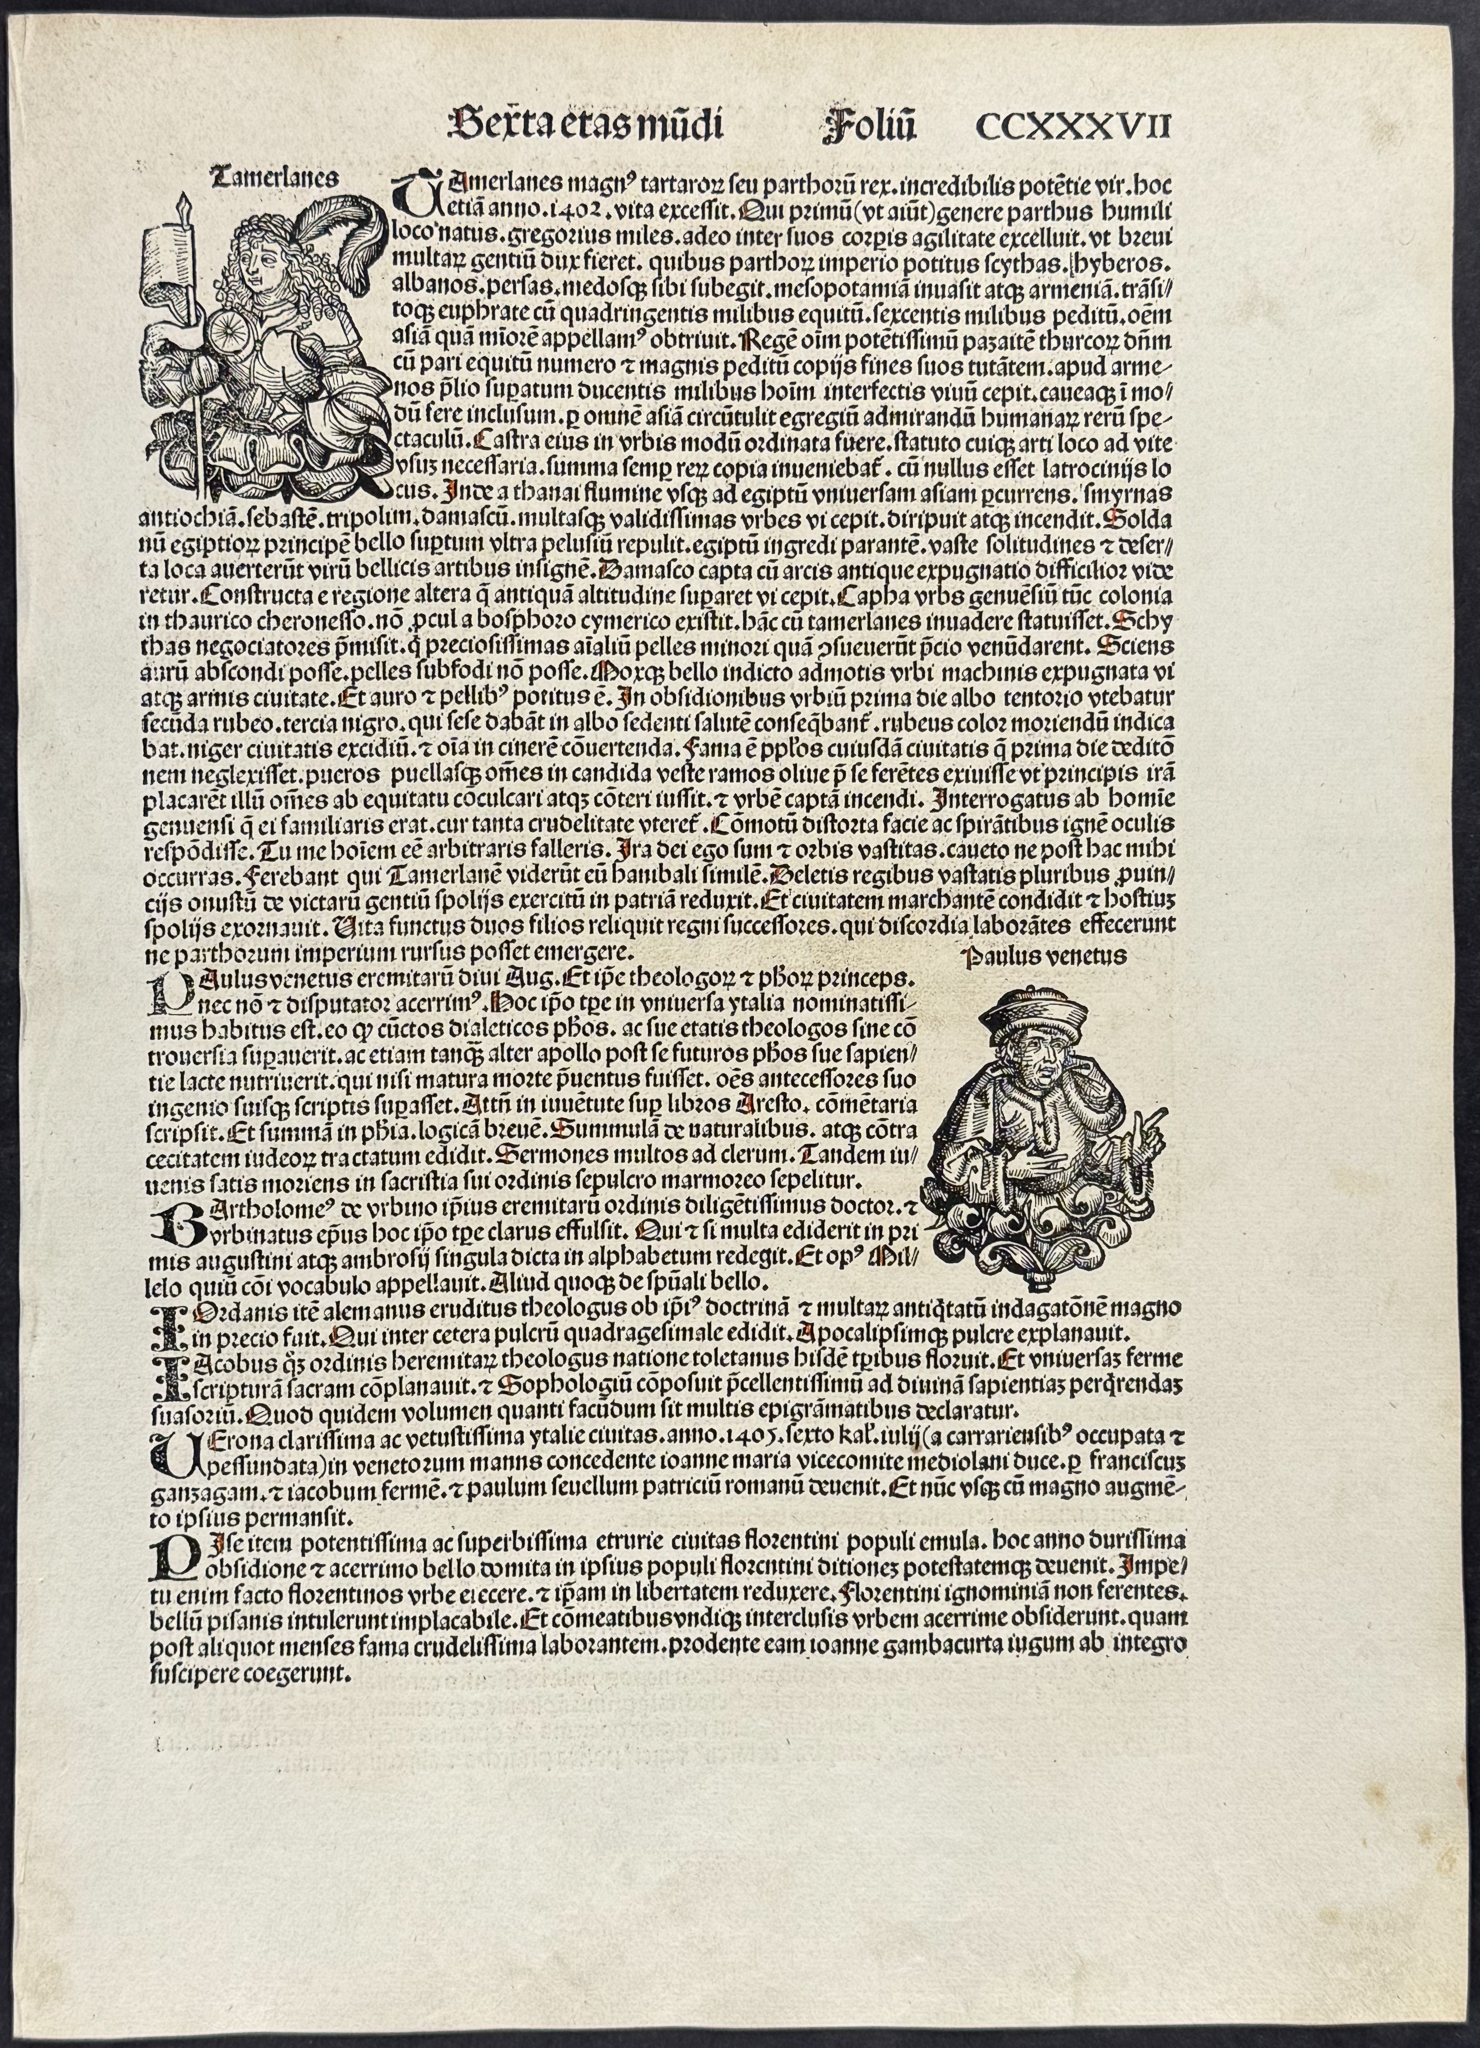 Sexta etas mūdi Foliū CCXXXVII
Tamerlanes
TAmerlanes magnꝰ tartaroꝝ seu parthorū rex. incredibilis potētie vir. hoc
etiā anno. 1402. vita excessit. Qui primū (vt aiūt) genere parthus humili
loco natus. gregorius miles. adeo inter suos corꝑis agilitate excelluit. vt breui
multaꝝ gentiū dux fieret. quibus parthoꝝ imperio potitus scythas. hyberos.
albanos. persas. medosqꝫ sibi subegit. mesopotamiā inuasit atqꝫ armeniā. trāsi⸗
toqꝫ euphrate cū quadringentis milibus equitū. sexcentis milibus peditū. oēm
asiā quā mīorē appellamꝰ obtriuit. Regē oīm potētissimū pazaitē thurcoꝝ dn̄m
cū pari equitū numero ⁊ magnis peditū copijs fines suos tutātem. apud arme⸗
nos p̄lio suꝑatum ducentis milibus hoīm interfectis viuū cepit. caueaqꝫ ī mo⸗
dū fere inclusum. ꝑ omnē asiā circūtulit egregiū admirandū humanaꝝ rerū spe⸗
ctaculū. Castra eius in vrbis modū ordinata fuere. statuto cuiqꝫ arti loco ad vite
vsuꝫ necessaria. summa semꝑ reꝝ copia inueniebat᷑. cū nullus esset latrocinijs lo
cus. Inde a thanai flumine vsqꝫ ad egiptū vniuersam asiam ꝑcurrens. smyrnas
antiochiā. sebastē. tripolim. damascū. multasqꝫ validissimas vrbes vi cepit. diripuit atqꝫ incendit. Solda
nū egiptioꝝ principē bello suꝑtum vltra pelusiū repulit. egiptū ingredi parantē. vaste solitudines ⁊ deser⸗
ta loca auerterūt virū bellicis artibus insignē. Damasco capta cū arcis antique expugnatio difficilior vide
retur. Constructa e regione altera q̄ antiquā altitudine suꝑaret vi cepit. Capha vrbs genuēsiū tūc colonia
in thaurico cheronesso. nō ꝓcul a bosphoro cymerico existit. hāc cū tamerlanes inuadere statuisset. Schy
thas negociatores p̄misit. q̇ preciosissimas aīaliū pelles minori quā ꝯsueuerūt p̄cio venūdarent. Sciens
aurū abscondi posse. pelles subfodi nō posse. Moxqꝫ bello indicto admotis vrbi machinis expugnata vi
atqꝫ armis ciuitate. Et auro ⁊ pellibꝰ potitus ē. In obsidionibus vrbiū prima die albo tentorio vtebatur
secūda rubeo. tercia nigro. qui sese dabāt in albo sedenti salutē conseq̄bant᷑. rubeus color moriendū indica
bat. niger ciuitatis excidiū. ⁊ oīa in cinerē cōuertenda. Fama ē pp̄los cuiusdā ciuitatis q̄ prima die deditō
nem neglexisset. pueros puellasqꝫ oēs in candida veste ramos oliue p̄ se ferētes exiuisse vt principis irā
placarēt illū oēs ab equitatu cōculcari atqꝫ cōteri iussit. ⁊ vrbē captā incendi. Interrogatus ab homīe
genuensi q̄ ei familiaris erat. cur tanta crudelitate vteret᷑. Cōmotū distorta facie ac spirātibus ignē oculis
respōdisse. Tu me hoīem eē arbitraris falleris. Ira dei ego sum ⁊ orbis vastitas. caueto ne post hac mihi
occurras. Ferebant qui Tamerlanē viderūt eū hanibali similē. Deletis regibus vastatis pluribus ꝓuin⸗
cijs onustū de victarū gentiū spolijs exercitū in patriā reduxit. Et ciuitatem marchantē condidit ⁊ hostiuꝫ
spolijs exornauit. Vita functus duos filios reliquit regni successores. qui discordia laborātes effecerunt
ne parthorum imperium rursus posset emergere.
Paulus venetus
PAulus venetus eremitarū diui Aug. Et ip̄e theologoꝝ ⁊ ph̄oꝝ princeps.
nec nō ⁊ disputator acerrimꝰ. Hoc ip̄o tꝑe in vniuersa ytalia nominatissi⸗
mus habitus est. eo ꝙ cūctos dialeticos ph̄os. ac sue etatis theologos sine cō
trouersia suꝑauerit. ac etiam tanqȝ̄ alter apollo post se futuros ph̄os sue sapien⸗
tie lacte nutriuerit. qui nisi matura morte p̄uentus fuisset. oēs antecessores suo
ingenio suisqꝫ scriptis suꝑasset. Attn̄ in iuuētute suꝑ libros Aresto. cōmētaria
scripsit. Et summā in ph̄ia. logicā breuē. Summulā de naturalibus. atqꝫ cōtra
cecitatem iudeoꝝ tractatum edidit. Sermones multos ad clerum. Tandem iu⸗
uenis satis moriens in sacristia sui ordinis sepulcro marmoreo sepelitur.
BArtholomeꝰ de vrbino ip̄ius eremitarū ordinis diligētissimus doctor. ⁊
vrbinatus ep̄us hoc ip̄o tꝑe clarus effulsit. Qui ⁊ si multa ediderit in pri
mis augustini atqꝫ ambrosij singula dicta in alphabetum redegit. Et opꝰ Mil⸗
lelo quiū cōi vocabulo appellauit. Aliud quoqꝫ de spūali bello.
IOrdanis itē alemanus eruditus theologus ob ip̄iꝰ doctrinā ⁊ multaꝝ antiq̇tatū indagatōnē magno
in precio fuit. Qui inter cetera pulcrū quadragesimale edidit. Apocalipsimqꝫ pulcre explanauit.
IAcobus q̊ꝫ ordinis heremitaꝝ theologus natione toletanus hisdē tꝑibus floruit. Et vniuersaꝫ ferme
scripturā sacram cōplanauit. ⁊ Sophologiū cōposuit p̄cellentissimū ad diuinā sapientiaꝫ perq̇rendaꝫ
suasoriū. Quod quidem volumen quanti facūdum sit multis epigrāmatibus declaratur.
VErona clarissima ac vetustissima ytalie ciuitas. anno. 1405. sexto kal᷑. iulij (a carrariensibꝰ occupata ⁊
pessundata) in venetorum manns concedente ioanne maria vicecomite mediolani duce. ꝑ franciscuꝫ
ganzagam. ⁊ iacobum fermē. ⁊ paulum seuellum patriciū romanū deuenit. Et nūc vsqꝫ cū magno augmē⸗
to ipsius permansit.
PIse item potentissima ac superbissima etrurie ciuitas florentini populi emula. hoc anno durissima
obsidione ⁊ acerrimo bello domita in ipsius populi florentini ditioneꝫ potestatemqꝫ deuenit. Impe⸗
tu enim facto florentinos vrbe eiecere. ⁊ ip̄am in libertatem reduxere. Florentini ignominiā non ferentes.
bellū pisanis intulerunt implacabile. Et cōmeatibus vndiqꝫ interclusis vrbem acerrime obsiderunt. quam
post aliquot menses fama crudelissima laborantem. prodente eam ioanne gambacurta iugum ab integro
suscipere coegerunt.